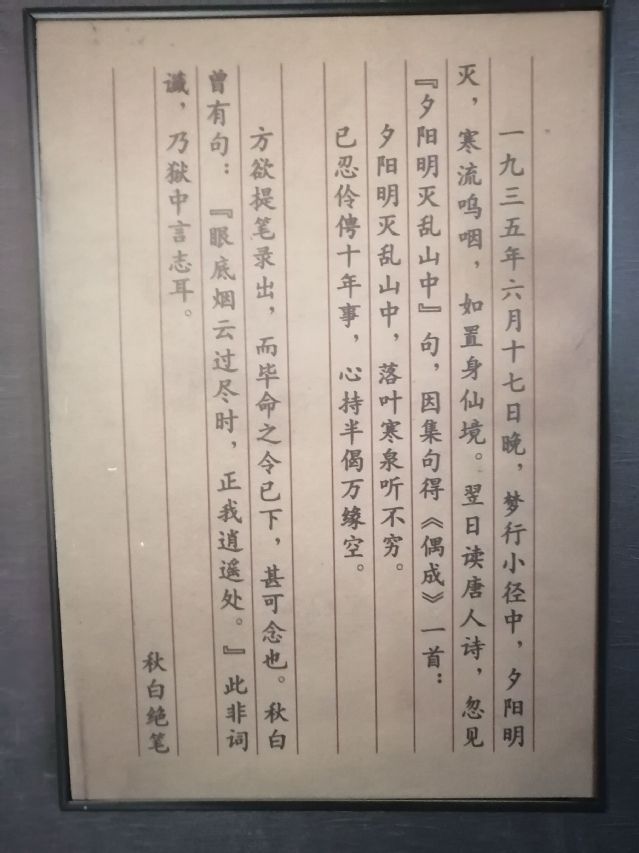 一九三五年六月十七日晚，梦行小径中，夕阳明
灭，寒流呜咽，如置身仙境。翌日读唐人诗，忽见
『夕阳明灭乱山中』句，因集句得《偶成》一首：
夕阳明灭乱山中，落叶寒泉听不穷。
已忍伶俜十年事，心持半偈万缘空。
方欲提笔录出，而毕命之令已下，甚可念也。秋白
曾有句：『眼底烟云过尽时，正我逍遥处。』此非词
谶，乃狱中言志耳。
秋白绝笔